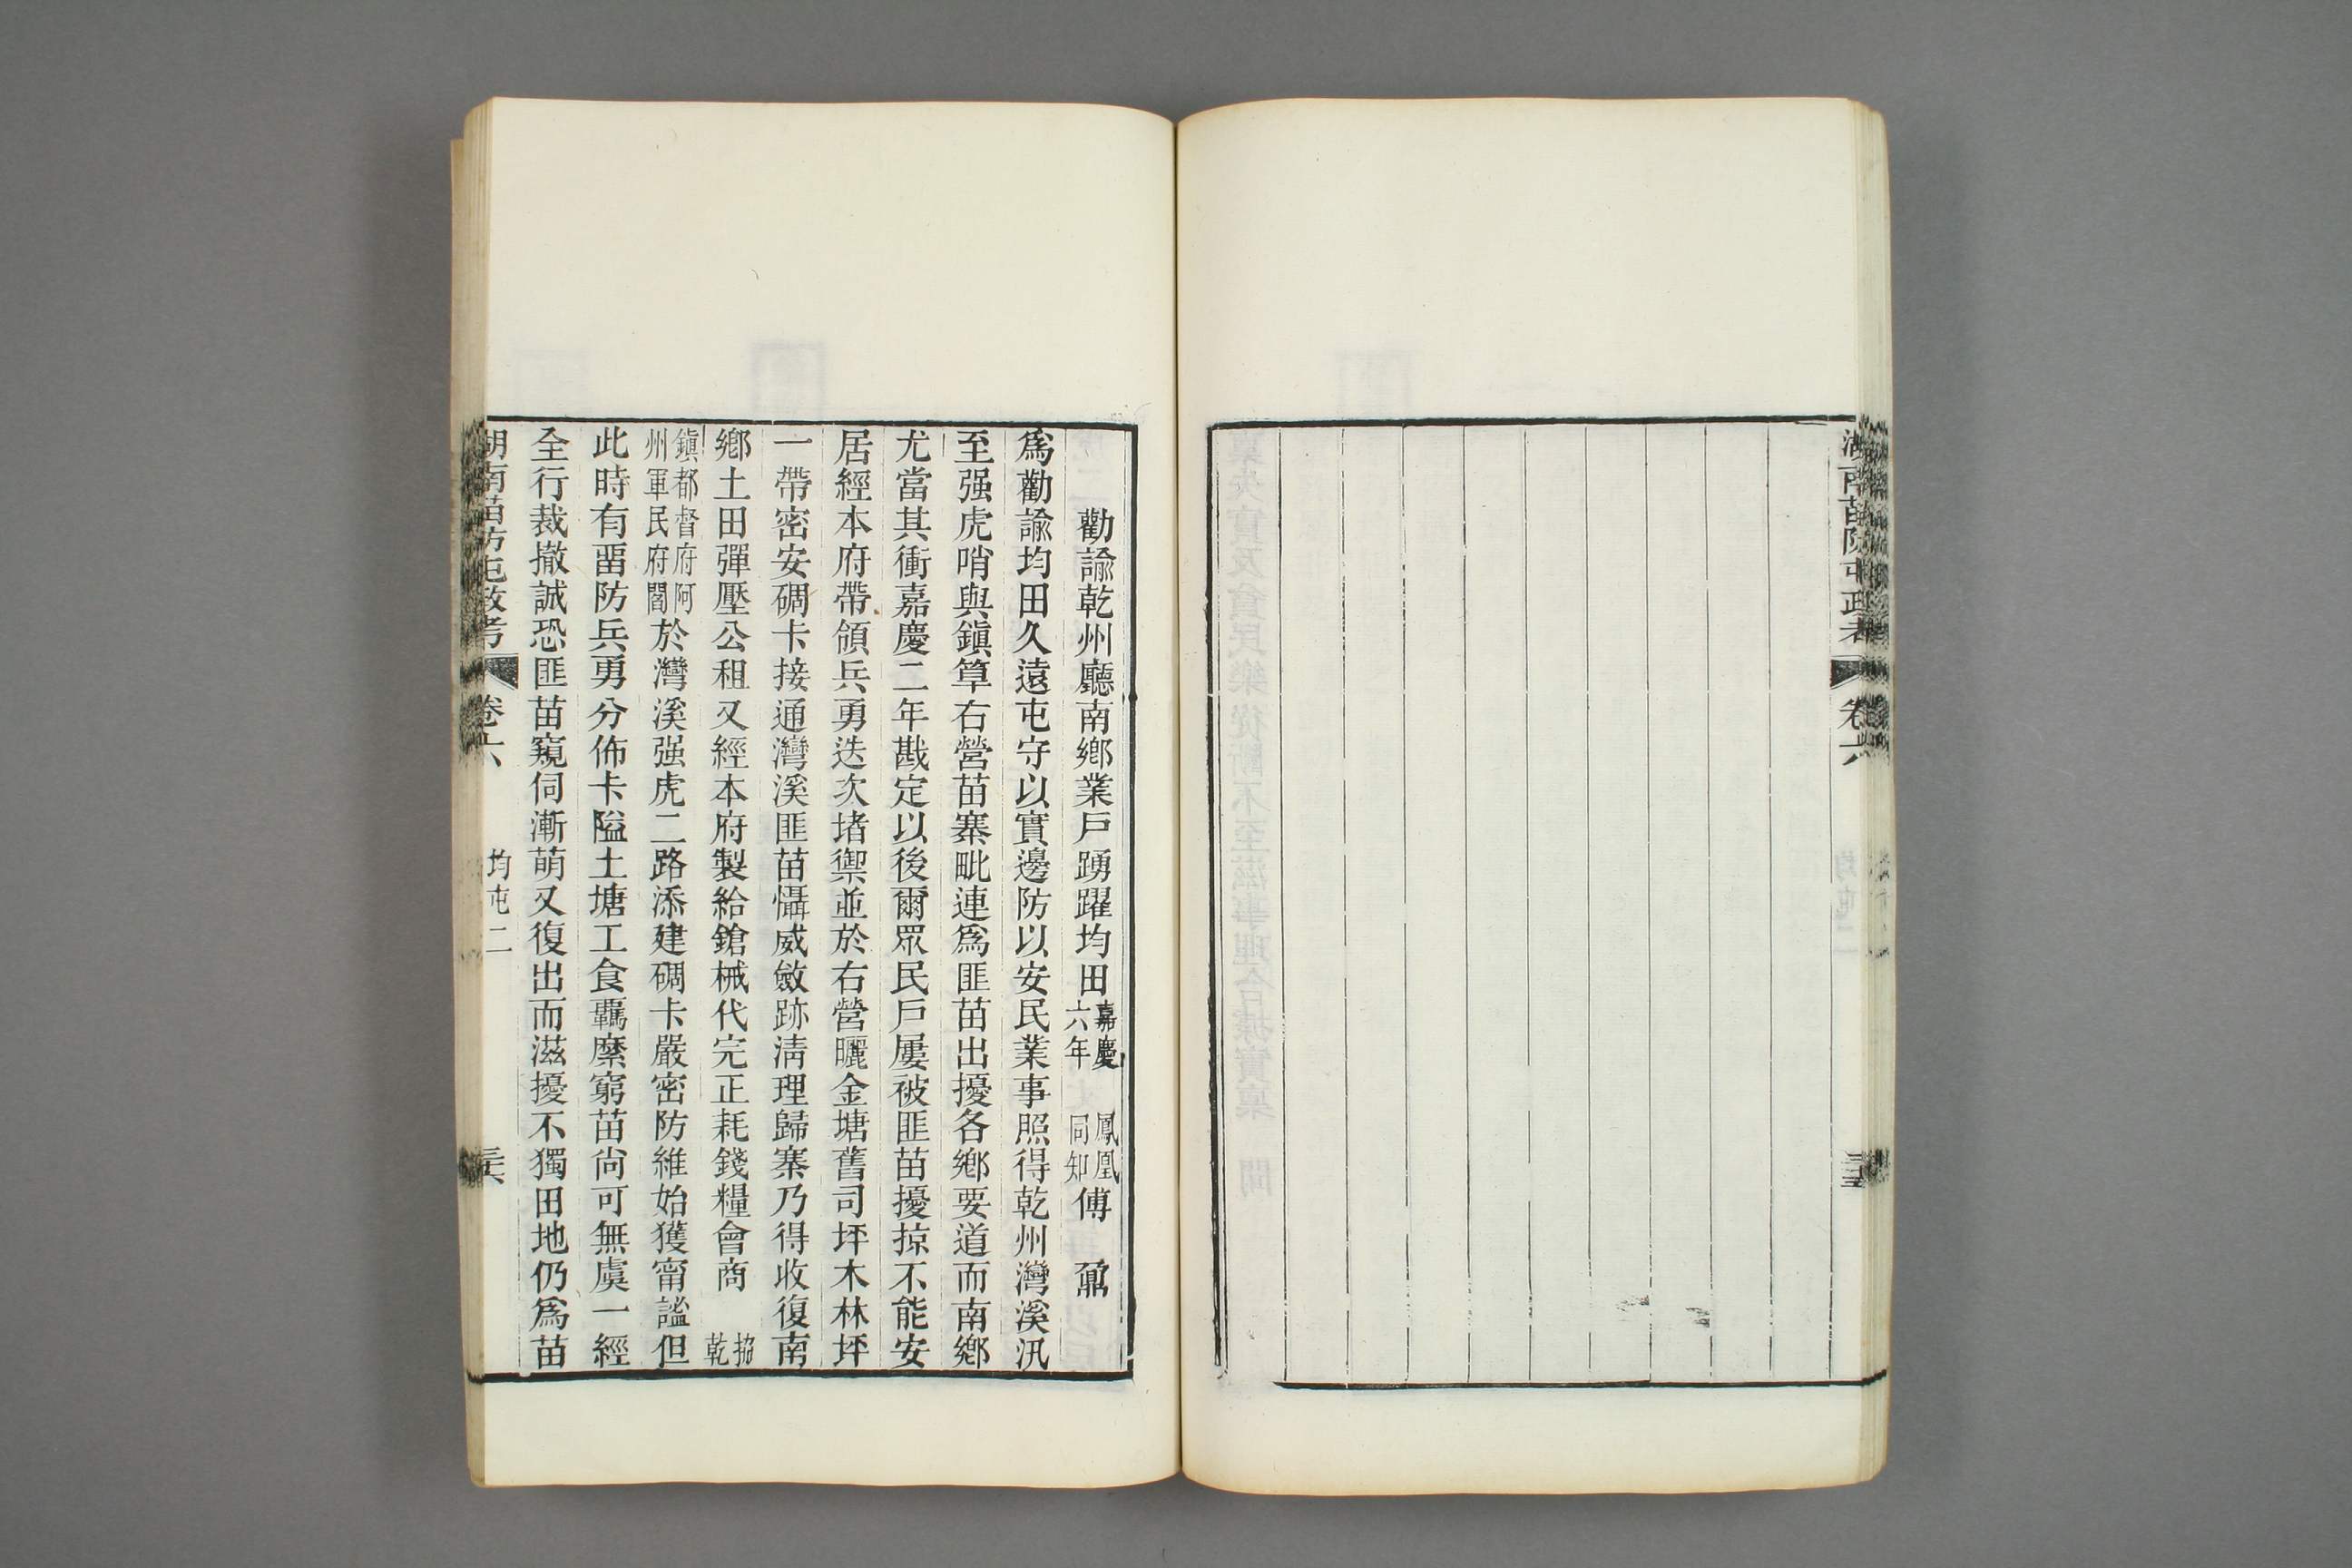 湖南苗防屯政考
卷六
三五
勸諭乾州廳南鄉業戶踴躍均田嘉慶六年 鳳凰同知傅 鼐
爲勸諭均田久遠屯守以實邊防以安民業事照得乾州灣溪汛
至强虎哨與鎭筸右營苗寨毗連爲匪苗出擾各鄉要道而南鄉
尤當其衝嘉慶二年戡定以後爾眾民戶屢被匪苗擾掠不能安
居經本府帶領兵勇迭次堵禦並於右營曬金塘舊司坪木林坪
一帶密安碉卡接通灣溪匪苗懾威斂跡淸理歸寨乃得收復南
鄉土田彈壓公租又經本府製給鎗械代完正耗錢糧會商 協乾
鎭都督府阿州軍民府閻於灣溪强虎二路添建碉卡嚴密防維始獲甯謐但
此時有畱防兵勇分佈卡隘土塘工食羈縻窮苗尙可無虞一經
全行裁撤誠恐匪苗窺伺漸萌又復出而滋擾不獨田地仍爲苗
湖南苗防屯政考
卷六
均屯二
三六